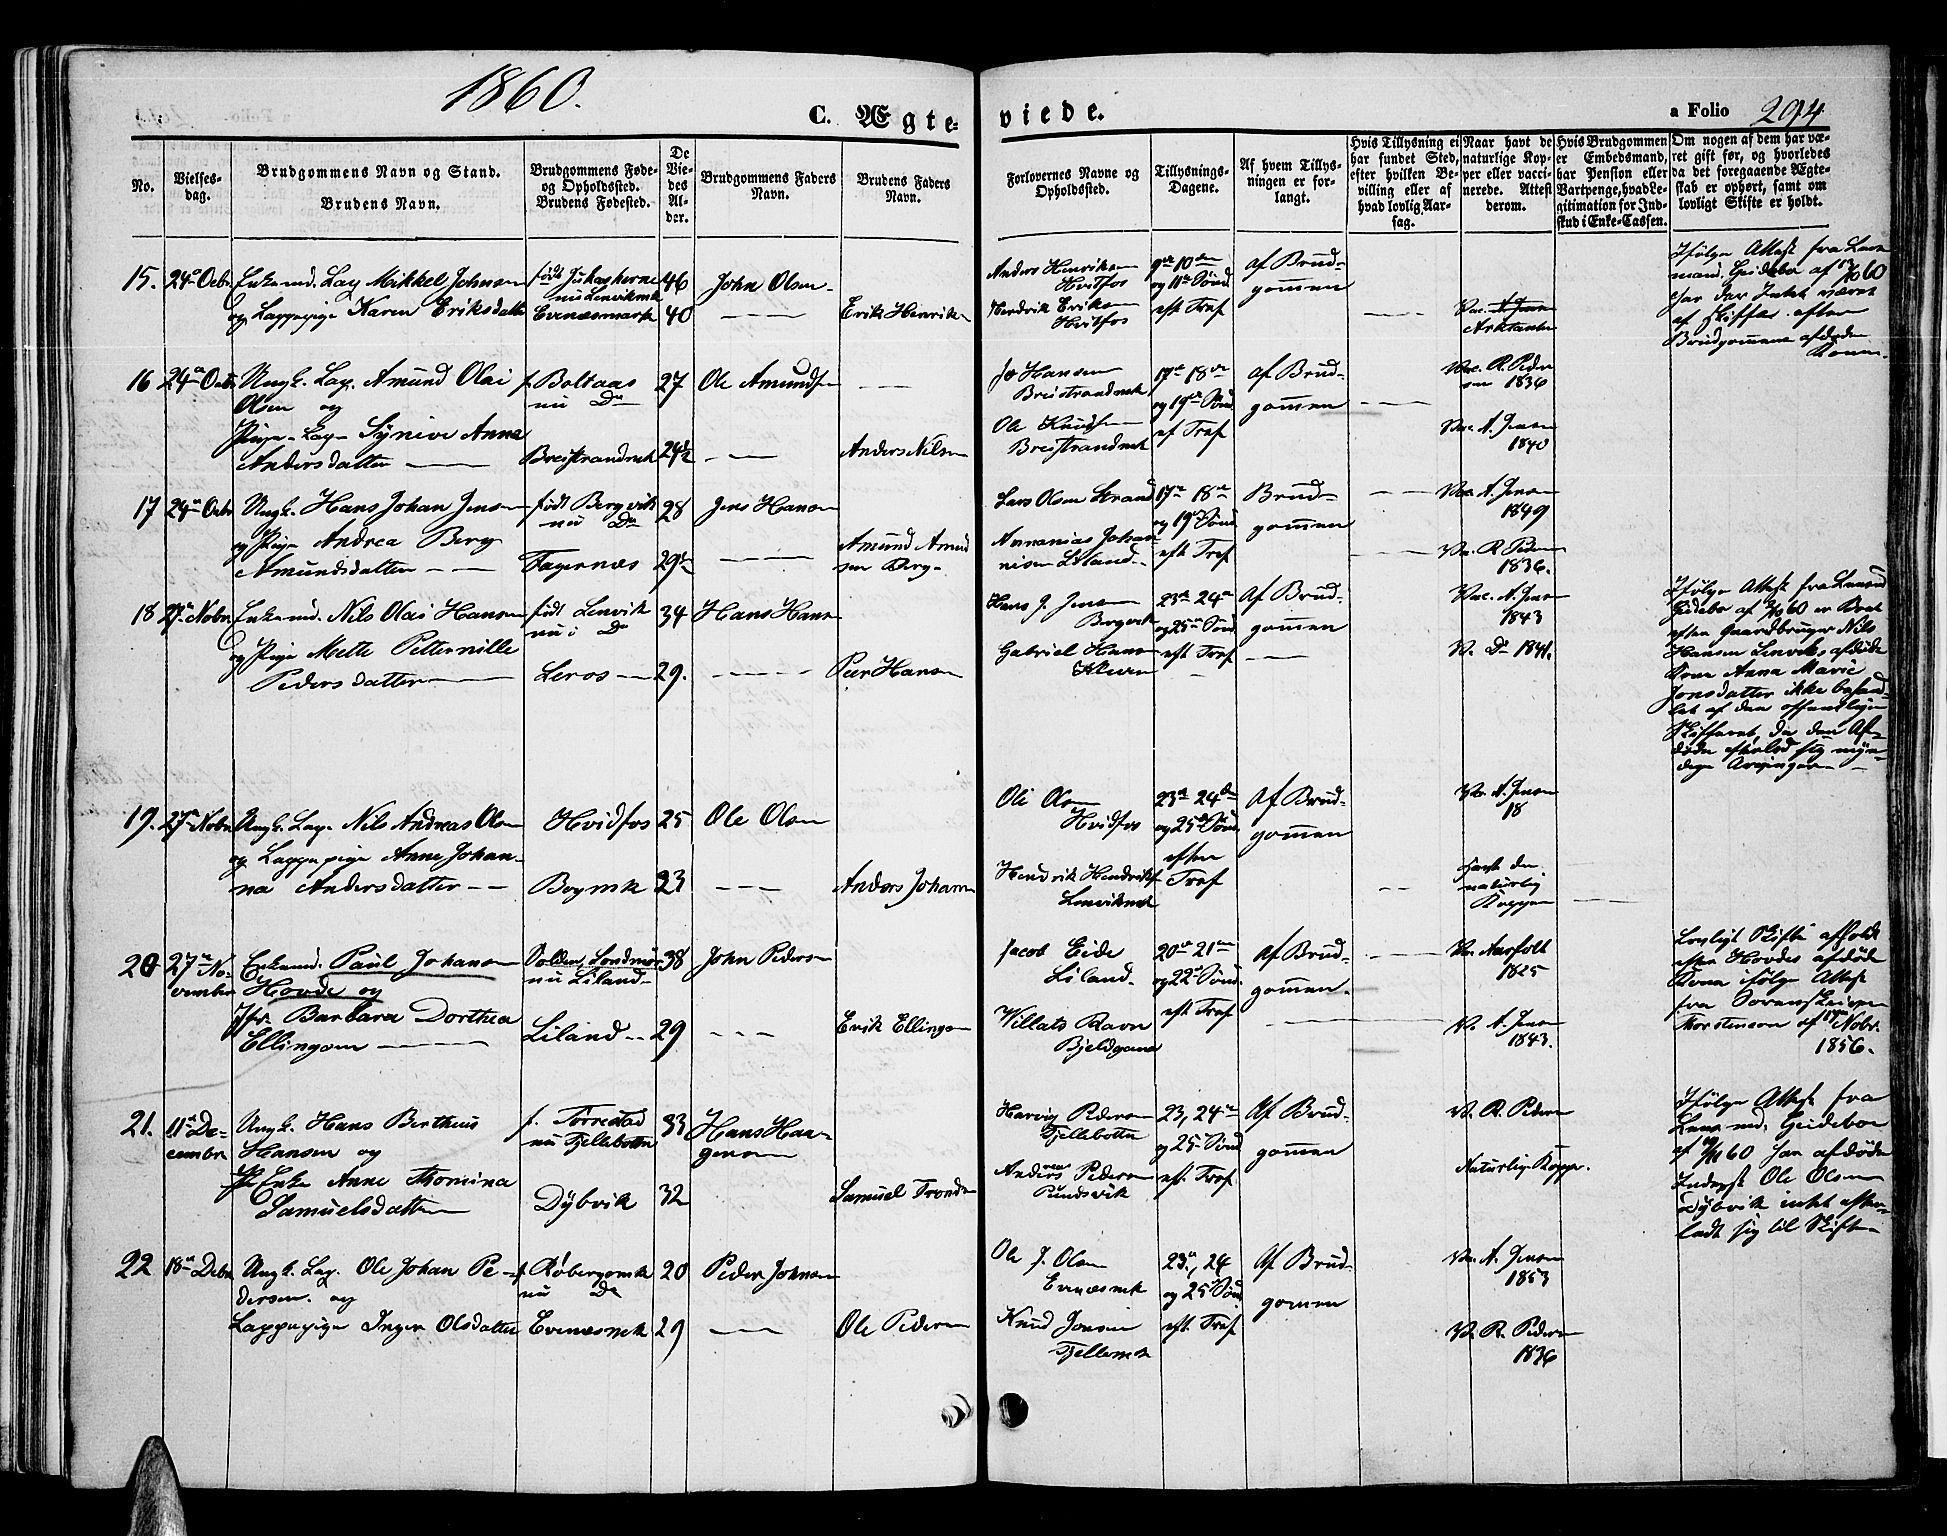 1860.
C. Ægte-
viede.
a Folio 294
No.
Vielses-
dag.
Brudgommens Navn og Stand.
Brudens Navn.
Brudgommens Føde-
og Opholdssted.
Brudens Fødested.
De
Vie-
des
Al-
der.
Brudgommens Faders
Navn.
Brudens Faders
Navn.
Forlovernes Navne og
Opholdssted.
Tillysnings-
Dagene.
Af hvem Tillys-
ningen er for-
langt.
Hvis Tillysning ei
har fundet Sted,
efter hvilken Be-
villing eller af
hvad lovlig Aar-
sag.
Naar havt de
naturlige Kop-
per eller vacci-
nerede. Attest
derom.
Hvis Brudgommen
er Embedsmand,
har Pension eller
Vartpenge, hvad Le-
gitimation for Ind-
skud i Enke-Cassen.
Om nogen af dem har væ-
ret gift før, og hvorledes
da det foregaaende Ægte-
skab er ophørt, samt om
lovligt Skifte er holdt.
15. 24 Octbr. Enkemd. Lap Mikkel Johnsen
og Lappepige Karen Eriksdatter
født Jukaskerne
nu Lenvikmk
Evenæsmark
46
40
John Olsen
Erik Henriksen
Anders Henriksen
Hvitfos
Hendrik Eriksen
Hvitfos
9de 10de
og 11te Sønd.
eft Tref
af Brud-
gommen
Ifølge Attest fra Lens-
mand Geidebo af
har der Intet været
at skifte efter
Brudgommens afdøde
Kone.
16 24de Octbr. Ungk. Lap. Amund Olai
Olsen og
Pige Lap. Synive Anne
Andersdatter
f. Boltaas
nu Do
Breistrandmk
27
24½
Ole Amundsen
Anders Nilsen
Jo Hansen
Breistrandmk
Ole Knudsen
Breistrandmk
17de 18de
og 19de Sønd
ef Tref
af Brud-
gommen
Vac. R. Peder
sen 1836
Vac. A. Jensen
1840
17 24de Octbr Ungk. Hans Johan Jensen
og Pige Andrea Berg
Amundsdatter
født Bergvik
nu Do
Fagernæs
28
29½
Jens Hansen
Amund Amund
sen Berg
Lars Olsen Strand
Annanias Johan-
nisen Liland
17de 18de
og 19de Sønd
eft Tref
Brud-
gommen
Vac. A. Jensen
1849
Vac. R. Peders
1836.
18 27de Nobr. Enkemd. Nils Olai Hansen
og Pige Mette Petternille
Pedersdatter
født Lenvik
nu i Do
Leros
34
29.
Hans Hans
Peer Hansen
Hans J. Jensen
Bergvik
Gabriel Hansen
Kleven
23de 24de
og 25de Sønd
eft Tref
Af Brud-
gommen
Vac. A. Jensen
1843
V. Do 1841.
Ifølge Attest fra Lensmd
Geidebo af er Boet
efter Gaardbruger Nils
Hansen Lenviks afdøde
Kone Anna Marie
Jonsdatter ikke behand-
let af den offentlige
Skifteret, da den Af-
døde efterlod sig myn-
dige Arvinger
19. 27de Nobr. Ungk. Lap. Nils Andreas Olsen
og Lappepige Anne Johan-
na Andersdatter
Hvidfos
Bogmk
25
23
Ole Olsen
Anders Johansen
Ole Olsen
Hvidfos
Hendrik Hendriksen
Lenvikmk
23de 24de
og 25de Sønd
efter
Tref
Af Brud-
gommen
Va. A. Jensen
18
Havt de
naturlig
Kopper
20 27de No-
vember
Enkemd. Paul Johansen
Hovde og
Jfr. Barbara Dorthea
Ellingsen
Volden Søndmør
nu Liland
Liland
38
29
John Pedersen
Erik Ellingsen
Jacob Eide
Liland.
Villats Ravn
Bjeldgam
20de 21de
og 22de Sønd.
eft Tref
Af Brud-
gommen.
Va. Aarfoldt
1825
V. A. Jensen
1843.
Lovligt Skifte afholdt
efter Hovdes afdøde
Kone ifølge Attest
fra Sorenskriver
Thorstensen af 17de Nobr.
1856.
21. 11te De-
cembr
Ungk. Hans Bertheus
Hansen og
Enke Anne Thomina
Samuelsdatter
f. Torrestad
nu Fjelldbotn
Dybvik
33
32
Hans Haa-
gensen
Samuel Tronds
Harvig Pedersen
Fjelldbotn
Andreas Pedersen
Pundsvik
23, 24de
og 25 Sønd
eft. Tref
Af Brud-
gommen
V. R. Pedersen
Naturlige Kopper.
Ifølge Attest fra
Lensmd. Geideboe
af har afdøde
Inderst Ole Olsen
Dybvik intet efter-
ladt sig til Skifte
22 18de Debr. Ungk. Lap. Ole Johan Pe-
dersen. og
Lappepige Inger Olsdatter
f. Røbergsmk
nu Do
Evenæsmk
20
29
Peder Johnsen
Ole Pedersen
Ole J. Olsen
Evenæsmk
Knud Jonsen
Fjeldemk
23de, 24
og 25 Sønd
eft. Tref
Af Brud-
gommen
Va. A. Jensen
1853
Va. R. Pedersen
1836